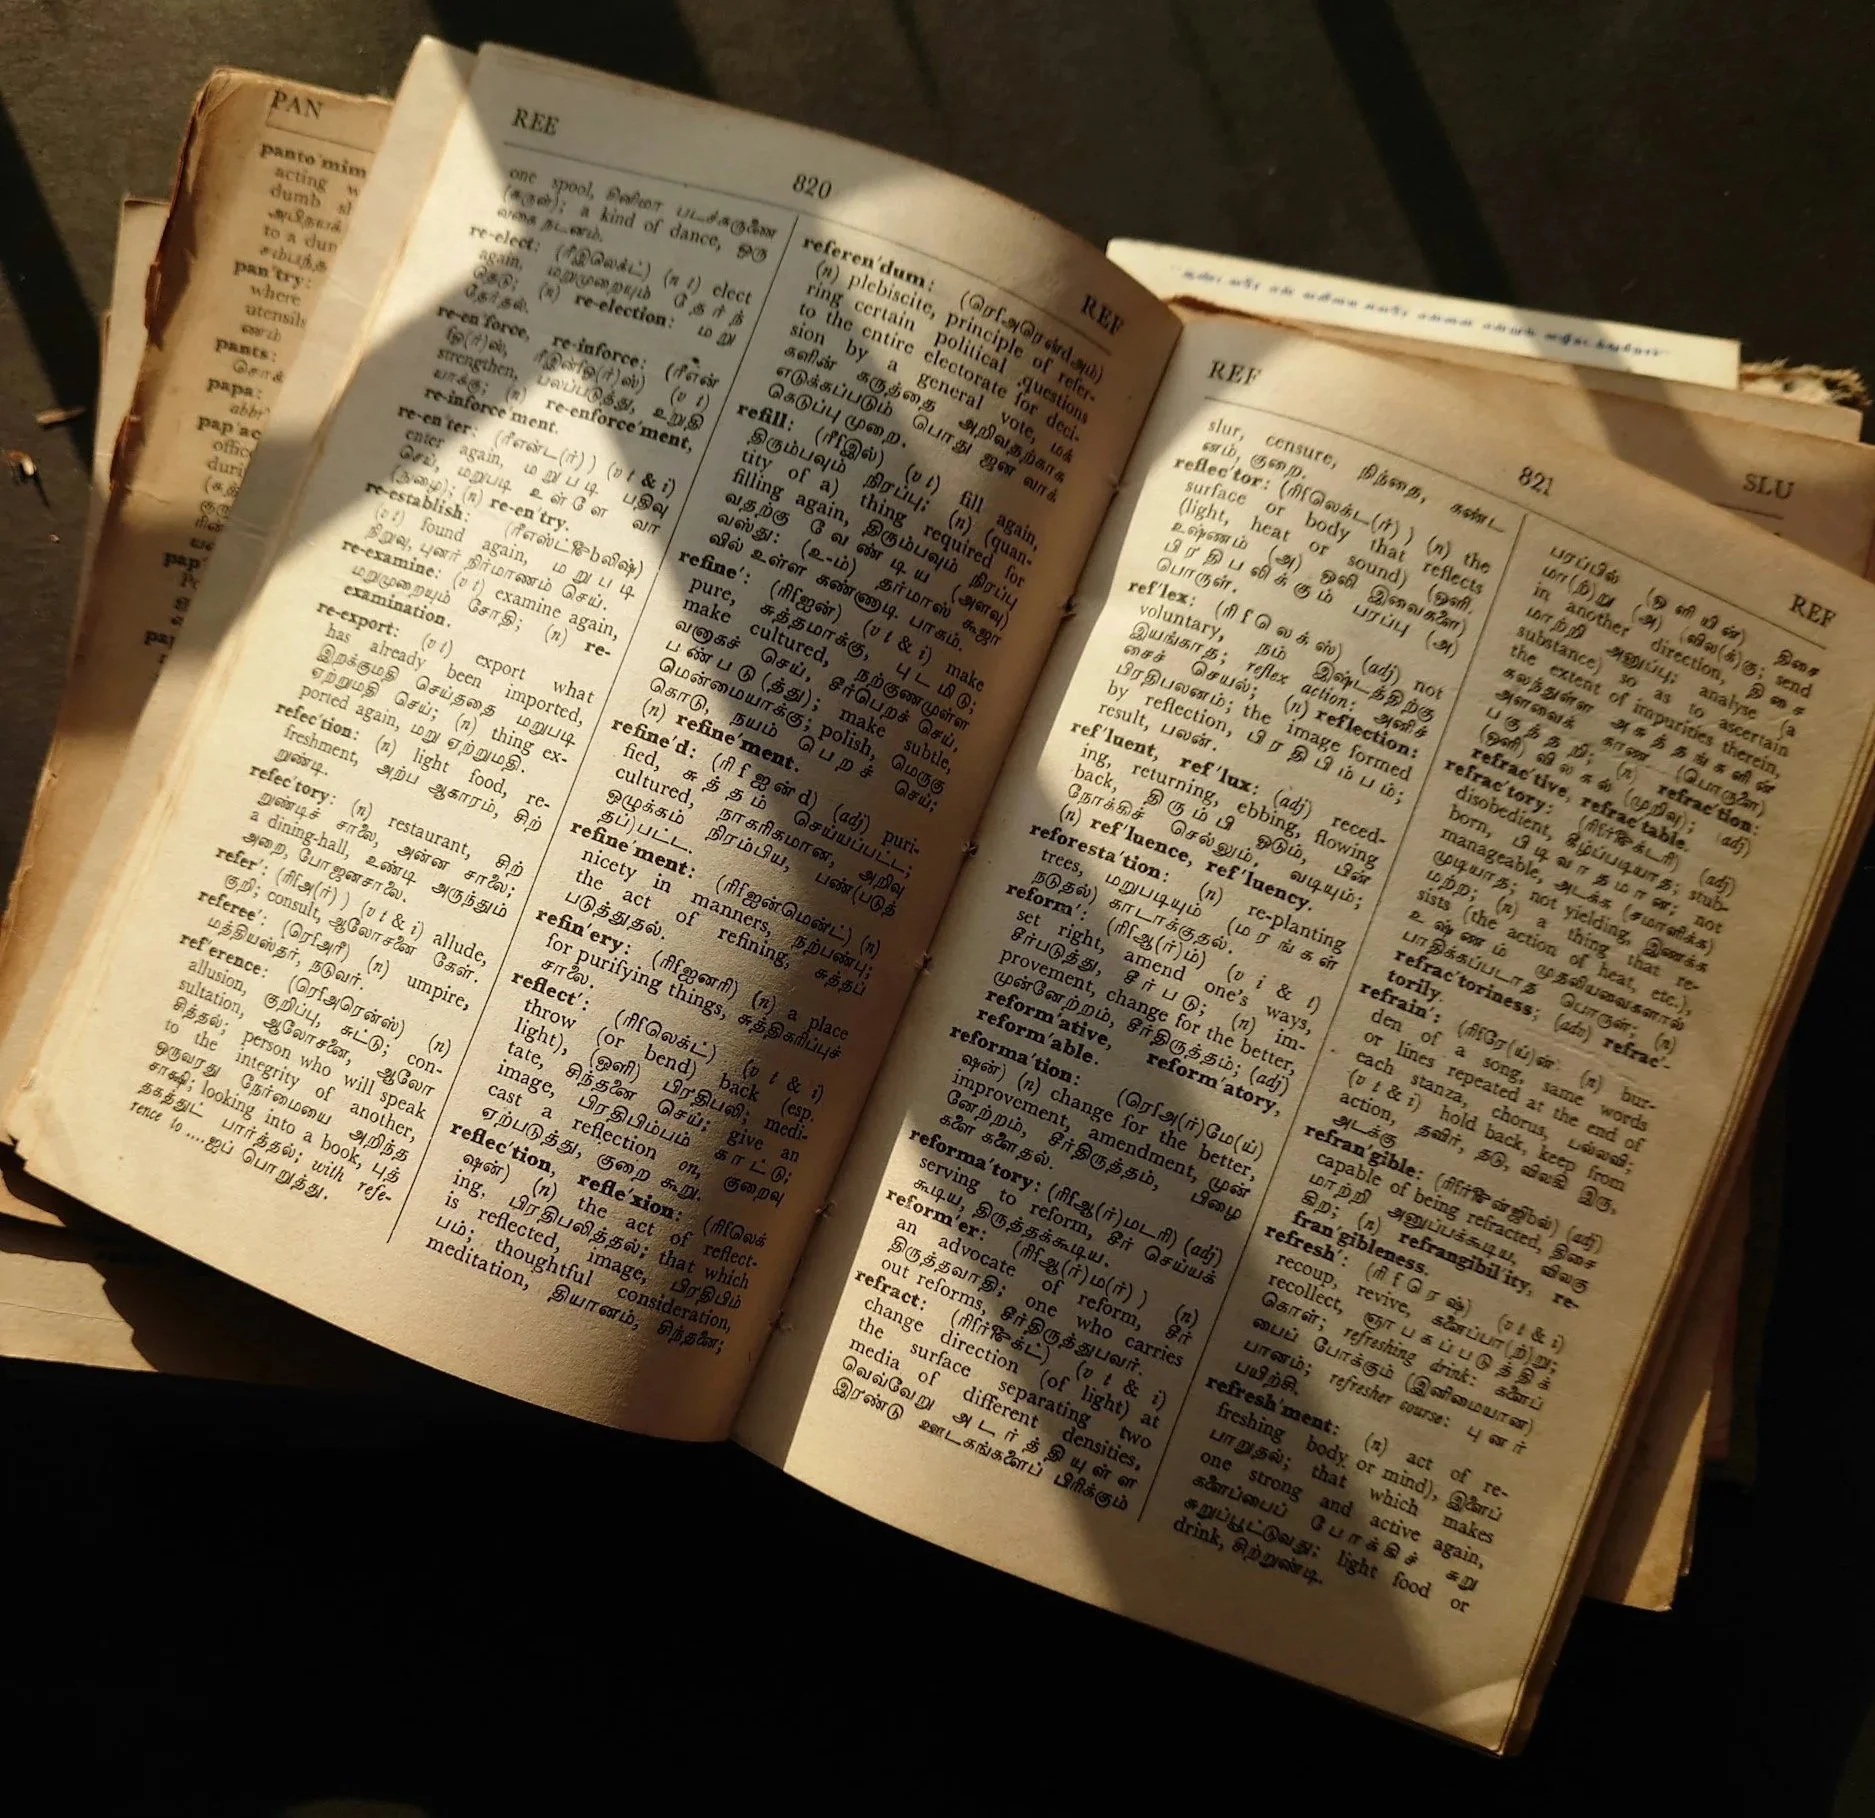 PAN
panto'mim
acting w
dumb sh
to a dun
pan'try:
where
utensils
pants:
papa:
abbr
pap'ac
office
duri
REE
820
REF
one spool, சினிமா படச்சுருணை
(சுருள்); a kind of dance, ஒரு
வகை நடனம்.
re-elect: (ரீஇலெக்ட்) (v t) elect
again, மறுமுறையும் தேர்ந்
தெடு; (n) re-election: மறு
தேர்தல்.
re-en'force, re-inforce: (ரீஎன்
strengthen, பலப்படுத்து, உறுதி
யாக்கு; (n) re-enforce'ment,
re-inforce'ment.
re-en'ter: (ரீஎண்ட(ர்)) (v t & i)
enter again, மறுபடி பதிவு
செய், மறுபடி உள்ளே வா
(நுழை); (n) re-en'try.
re-establish: (ரீஎஸ்ட்
(v t) found again, மறுபடி
நிறுவு, புனர் நிர்மாணம் செய்.
re-examine: (v t) examine again,
மறுமுறையும் சோதி; (n) re-
examination.
re-export: (v t) export what
has already been imported,
இறக்குமதி செய்ததை மறுபடி
ஏற்றுமதி செய்; (n) thing ex-
ported again, மறு ஏற்றுமதி.
refec'tion: (n) light food, re-
freshment, அற்ப ஆகாரம், சிற்
றுண்டி.
refec'tory: (n) restaurant, சிற்
றுண்டிச் சாலை, அன்ன சாலை;
a dining-hall, உண்டி அருந்தும்
அறை, போஜனசாலை.
refer': (v t & i) allude,
குறி; consult, ஆலோசனை கேள்.
referee': (n) umpire,
மத்தியஸ்தர், நடுவர்.
ref'erence: (n)
allusion, குறிப்பு, சுட்டு; con-
sultation, ஆலோசனை, ஆலோ
சித்தல்; person who will speak
to the integrity of another,
ஒருவரது நேர்மையை அறிந்த
சாக்ஷி; looking into a book, புத்
தகத்துட் பார்த்தல்; with refe-
rence to ....ஐப் பொறுத்து.
referen'dum:
(n) plebiscite, principle of refer-
ring certain political questions
to the entire electorate for deci-
sion by a general vote, மக்
களின் கருத்தை அறிவதற்காக
எடுக்கப்படும் பொது ஜன வாக்
கெடுப்பு முறை.
refill: (v t) fill again,
திரும்பவும் நிரப்பு; (n) (quan-
tity of a) thing required for
filling again, திரும்பவும் நிரப்பு
வதற்கு வேண்டிய (அளவு)
வஸ்து: (உ-ம்) தர்மாஸ் கூஜா
வில் உள்ள கண்ணாடி பாகம்.
refine': (v t & i) make
pure, சுத்தமாக்கு, புடமிடு;
make cultured, நற்குணமுள்ள
வனாகச் செய், சீர்பெறச் செய்,
பண்படு(த்து); make subtle,
மென்மையாக்கு; polish, மெருகு
கொடு, நயம் பெறச் செய்;
(n) refine'ment.
refine'd: (adj) puri-
fied, சுத்தம் செய்யப்பட்ட;
cultured, நாகரிகமான, அறிவு
ஒழுக்கம் நிரம்பிய, பண்(படுத்
தப்)பட்ட.
refine'ment: (n)
nicety in manners, நற்பண்பு;
the act of refining, சுத்தப்
படுத்துதல்.
refin'ery: (n) a place
for purifying things, சுத்திகரிப்புச்
சாலை.
reflect': (v t & i)
throw (or bend) back (esp.
light), (ஒளி) பிரதிபலி; medi-
tate, சிந்தனை செய்; give an
image, பிரதிபிம்பம் காட்டு;
cast a reflection on, குறைவு
ஏற்படுத்து, குறை கூறு.
reflec'tion, refle'xion:
ஷன்) (n) the act of reflect-
ing, பிரதிபலித்தல்; that which
is reflected, image, பிரதிபிம்
பம்; thoughtful consideration,
meditation, தியானம், சிந்தனை;
REF
821
REF
slur, censure, நிந்தை, கண்ட
னம், குறை.
reflec'tor: (n) the
surface or body that reflects
(light, heat or sound) (ஒளி,
உஷ்ணம் (அ) ஒலி இவைகளை)
பிரதிபலிக்கும் பரப்பு (அ)
பொருள்.
ref'lex: (adj) not
voluntary, நம் இஷ்டத்திற்கு
இயங்காத; reflex action: அனிச்
சைச் செயல்; (n) reflection:
பிரதிபலனம்; the image formed
by reflection, பிரதிபிம்பம்;
result, பலன்.
ref'luent, ref'lux: (adj) reced-
ing, returning, ebbing, flowing
back, திரும்பி ஓடும், பின்
நோக்கிச் செல்லும், வடியும்;
(n) ref'luence, ref'luency.
reforesta'tion: (n) re-planting
trees, மறுபடியும் (மரங்கள்
நடுதல்) காடாக்குதல்.
reform': (v i & t)
set right, amend one's ways,
சீர்படுத்து, சீர்படு; (n) im-
provement, change for the better,
முன்னேற்றம், சீர்திருத்தம்; (adj)
reform'ative, reform'atory,
reform'able.
reforma'tion:
ஷன்) (n) change for the better,
improvement, amendment, முன்
னேற்றம், சீர்திருத்தம், பிழை
களை களைதல்.
reforma'tory: (adj)
serving to reform, சீர் செய்யக்
கூடிய, திருத்தக்கூடிய.
reform'er: (n)
an advocate of reform, சீர்
திருத்தவாதி; one who carries
out reforms, சீர்திருத்துபவர்.
refract: (v t & i)
change direction (of light) at
the surface separating two
media of different densities,
வெவ்வேறு அடர்த்தியுள்ள
இரண்டு ஊடகங்களைப் பிரிக்கும்
SLU
பரப்பில் (ஒளியின்) திசை
மா(ற்)று (அ) (விலக்)கு; send
in another direction, திசை
மாற்றி அனுப்பு; analyse (a
substance) so as to ascertain
the extent of impurities therein,
கலந்துள்ள அசுத்தங்களின்
அளவைக் காண (பொருளை)
பகுத்தறி; (n) refrac'tion:
(ஒளி) விலகல் (முறிவு); (adj)
refrac'tive, refrac'table.
refrac'tory: (adj)
disobedient, கீழ்ப்படியாத; stub-
born, பிடிவாதமான; not
manageable, அடக்க (சமாளிக்க)
முடியாத; not yielding, இணக்க
மற்ற; (n) a thing that re-
sists (the action of heat, etc.),
உஷ்ணம் முதலியவைகளால்
பாதிக்கப்படாத பொருள்;
refrac'toriness; (adv) refrac'-
torily.
refrain': (n) bur-
den of a song, same words
or lines repeated at the end of
each stanza, chorus, பல்லவி;
(v t & i) hold back, keep from
action, தவிர், தடு, விலகி இரு,
அடக்கு
refran'gible: (adj)
capable of being refracted, திசை
மாற்றி அனுப்பக்கூடிய, விலகு
கிற; (n) refrangibil'ity, re-
fran'gibleness.
refresh': (v t & i)
recoup, revive, களைப்பா(ற்)று;
recollect, ஞாபகப்படுத்திக்
கொள்; refreshing drink: களைப்
பைப் போக்கும் (இனிமையான)
பானம்; refresher course: புனர்
பயிற்சி.
refresh'ment: (n) act of re-
freshing body or mind), இளைப்
பாறுதல்; that which makes
one strong and active again,
களைப்பைப் போக்கிச் சுறு
சுறுப்பூட்டுவது; light food or
drink, சிற்றுண்டி.